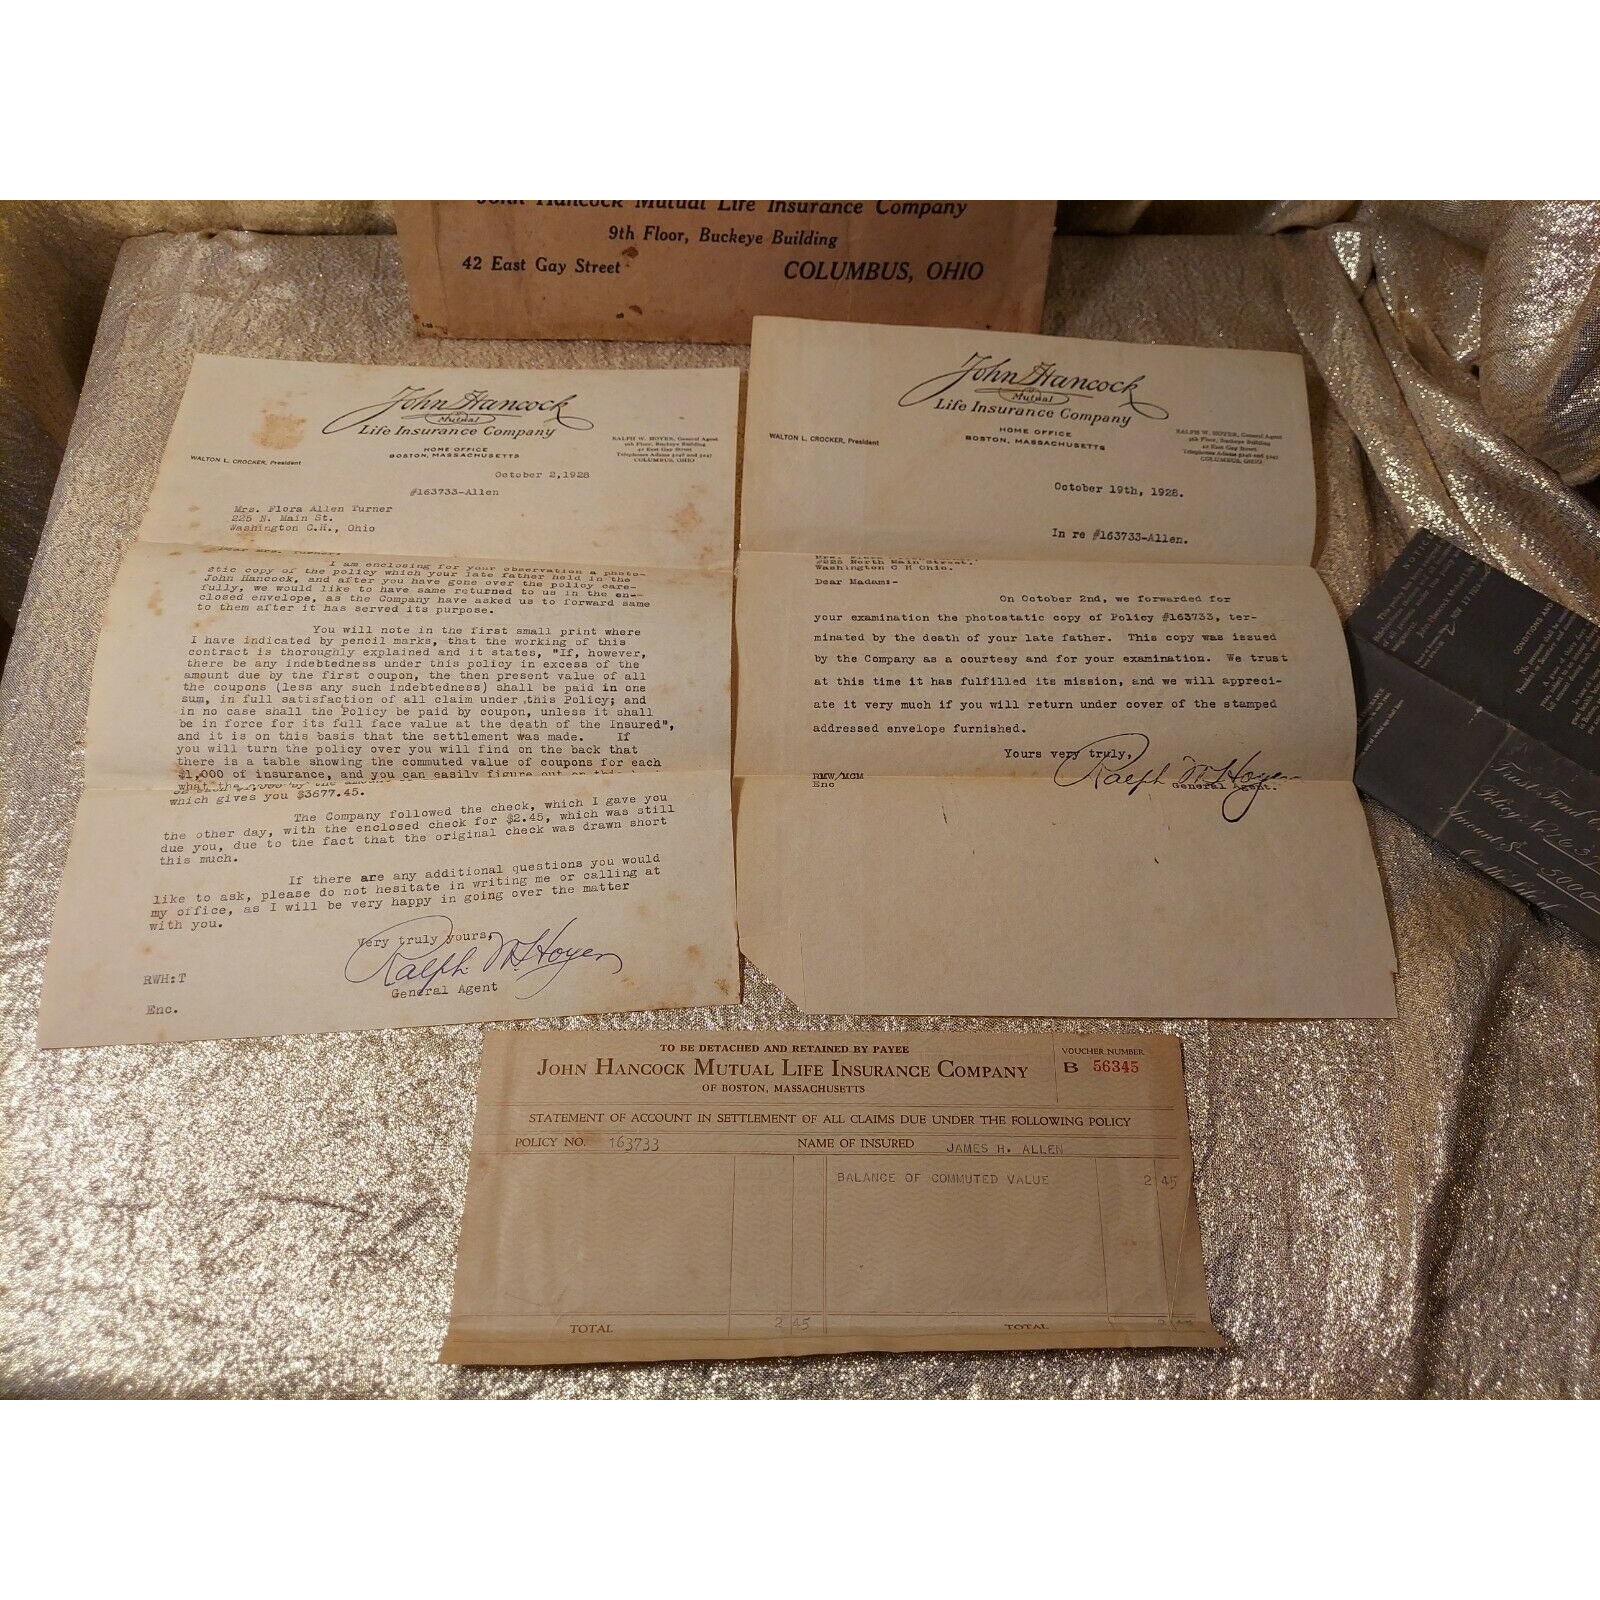 John Hancock Mutual Life Insurance Company
9th Floor, Buckeye Building
42 East Gay Street COLUMBUS, OHIO
John Hancock
Mutual
Life Insurance Company
HOME OFFICE
BOSTON, MASSACHUSETTS
WALTON L. CROCKER, President
RALPH W. HOYER, General Agent
9th Floor, Buckeye Building
42 East Gay Street
Telephones Adams 5246 and 5247
COLUMBUS, OHIO
October 2,1928
#163733-Allen
Mrs. Flora Allen Turner
225 N. Main St.
Washington C.H., Ohio
Dear Mrs. Turner:
I am enclosing for your observation a photo-
stic copy of the policy which your late father held in the
John Hancock, and after you have gone over the policy care-
fully, we would like to have same returned to us in the en-
closed envelope, as the Company have asked us to forward same
to them after it has served its purpose.
You will note in the first small print where
I have indicated by pencil marks, that the working of this
contract is thoroughly explained and it states, "If, however,
there be any indebtedness under this policy in excess of the
amount due by the first coupon, the then present value of all
the coupons (less any such indebtedness) shall be paid in one
sum, in full satisfaction of all claim under this Policy; and
in no case shall the Policy be paid by coupon, unless it shall
be in force for its full face value at the death of the Insured",
and it is on this basis that the settlement was made. If
you will turn the policy over you will find on the back that
there is a table showing the commuted value of coupons for each
$1,000 of insurance, and you can easily figure out on this
what the by the
which gives you $3677.45.
The Company followed the check, which I gave you
the other day, with the enclosed check for $2.45, which was still
due you, due to the fact that the original check was drawn short
this much.
If there are any additional questions you would
like to ask, please do not hesitate in writing me or calling at
my office, as I will be very happy in going over the matter
with you.
Very truly yours,
Ralph W. Hoyer
General Agent
RWH:T
Enc.
John Hancock
Mutual
Life Insurance Company
HOME OFFICE
BOSTON, MASSACHUSETTS
WALTON L. CROCKER, President
RALPH W. HOYER, General Agent
9th Floor, Buckeye Building
42 East Gay Street
Telephones Adams 5246 and 5247
COLUMBUS, OHIO
October 19th, 1928.
In re #163733-Allen.
#225 North Main Street.
Washington C H Ohio.
Dear Madam:-
On October 2nd, we forwarded for
your examination the photostatic copy of Policy #163733, ter-
minated by the death of your late father. This copy was issued
by the Company as a courtesy and for your examination. We trust
at this time it has fulfilled its mission, and we will appreci-
ate it very much if you will return under cover of the stamped
addressed envelope furnished.
Yours very truly,
Ralph W. Hoyer
General Agent.
RMW/MCM
Enc
NOTICE
CONDITIONS AND
Trust Fund
Policy No
Amount $ 5000
On the Life
TO BE DETACHED AND RETAINED BY PAYEE
JOHN HANCOCK MUTUAL LIFE INSURANCE COMPANY
OF BOSTON, MASSACHUSETTS
VOUCHER NUMBER
B 56345
STATEMENT OF ACCOUNT IN SETTLEMENT OF ALL CLAIMS DUE UNDER THE FOLLOWING POLICY
POLICY NO. 163733 NAME OF INSURED JAMES H. ALLEN
BALANCE OF COMMUTED VALUE 2 45
TOTAL 2 45 TOTAL 2 45